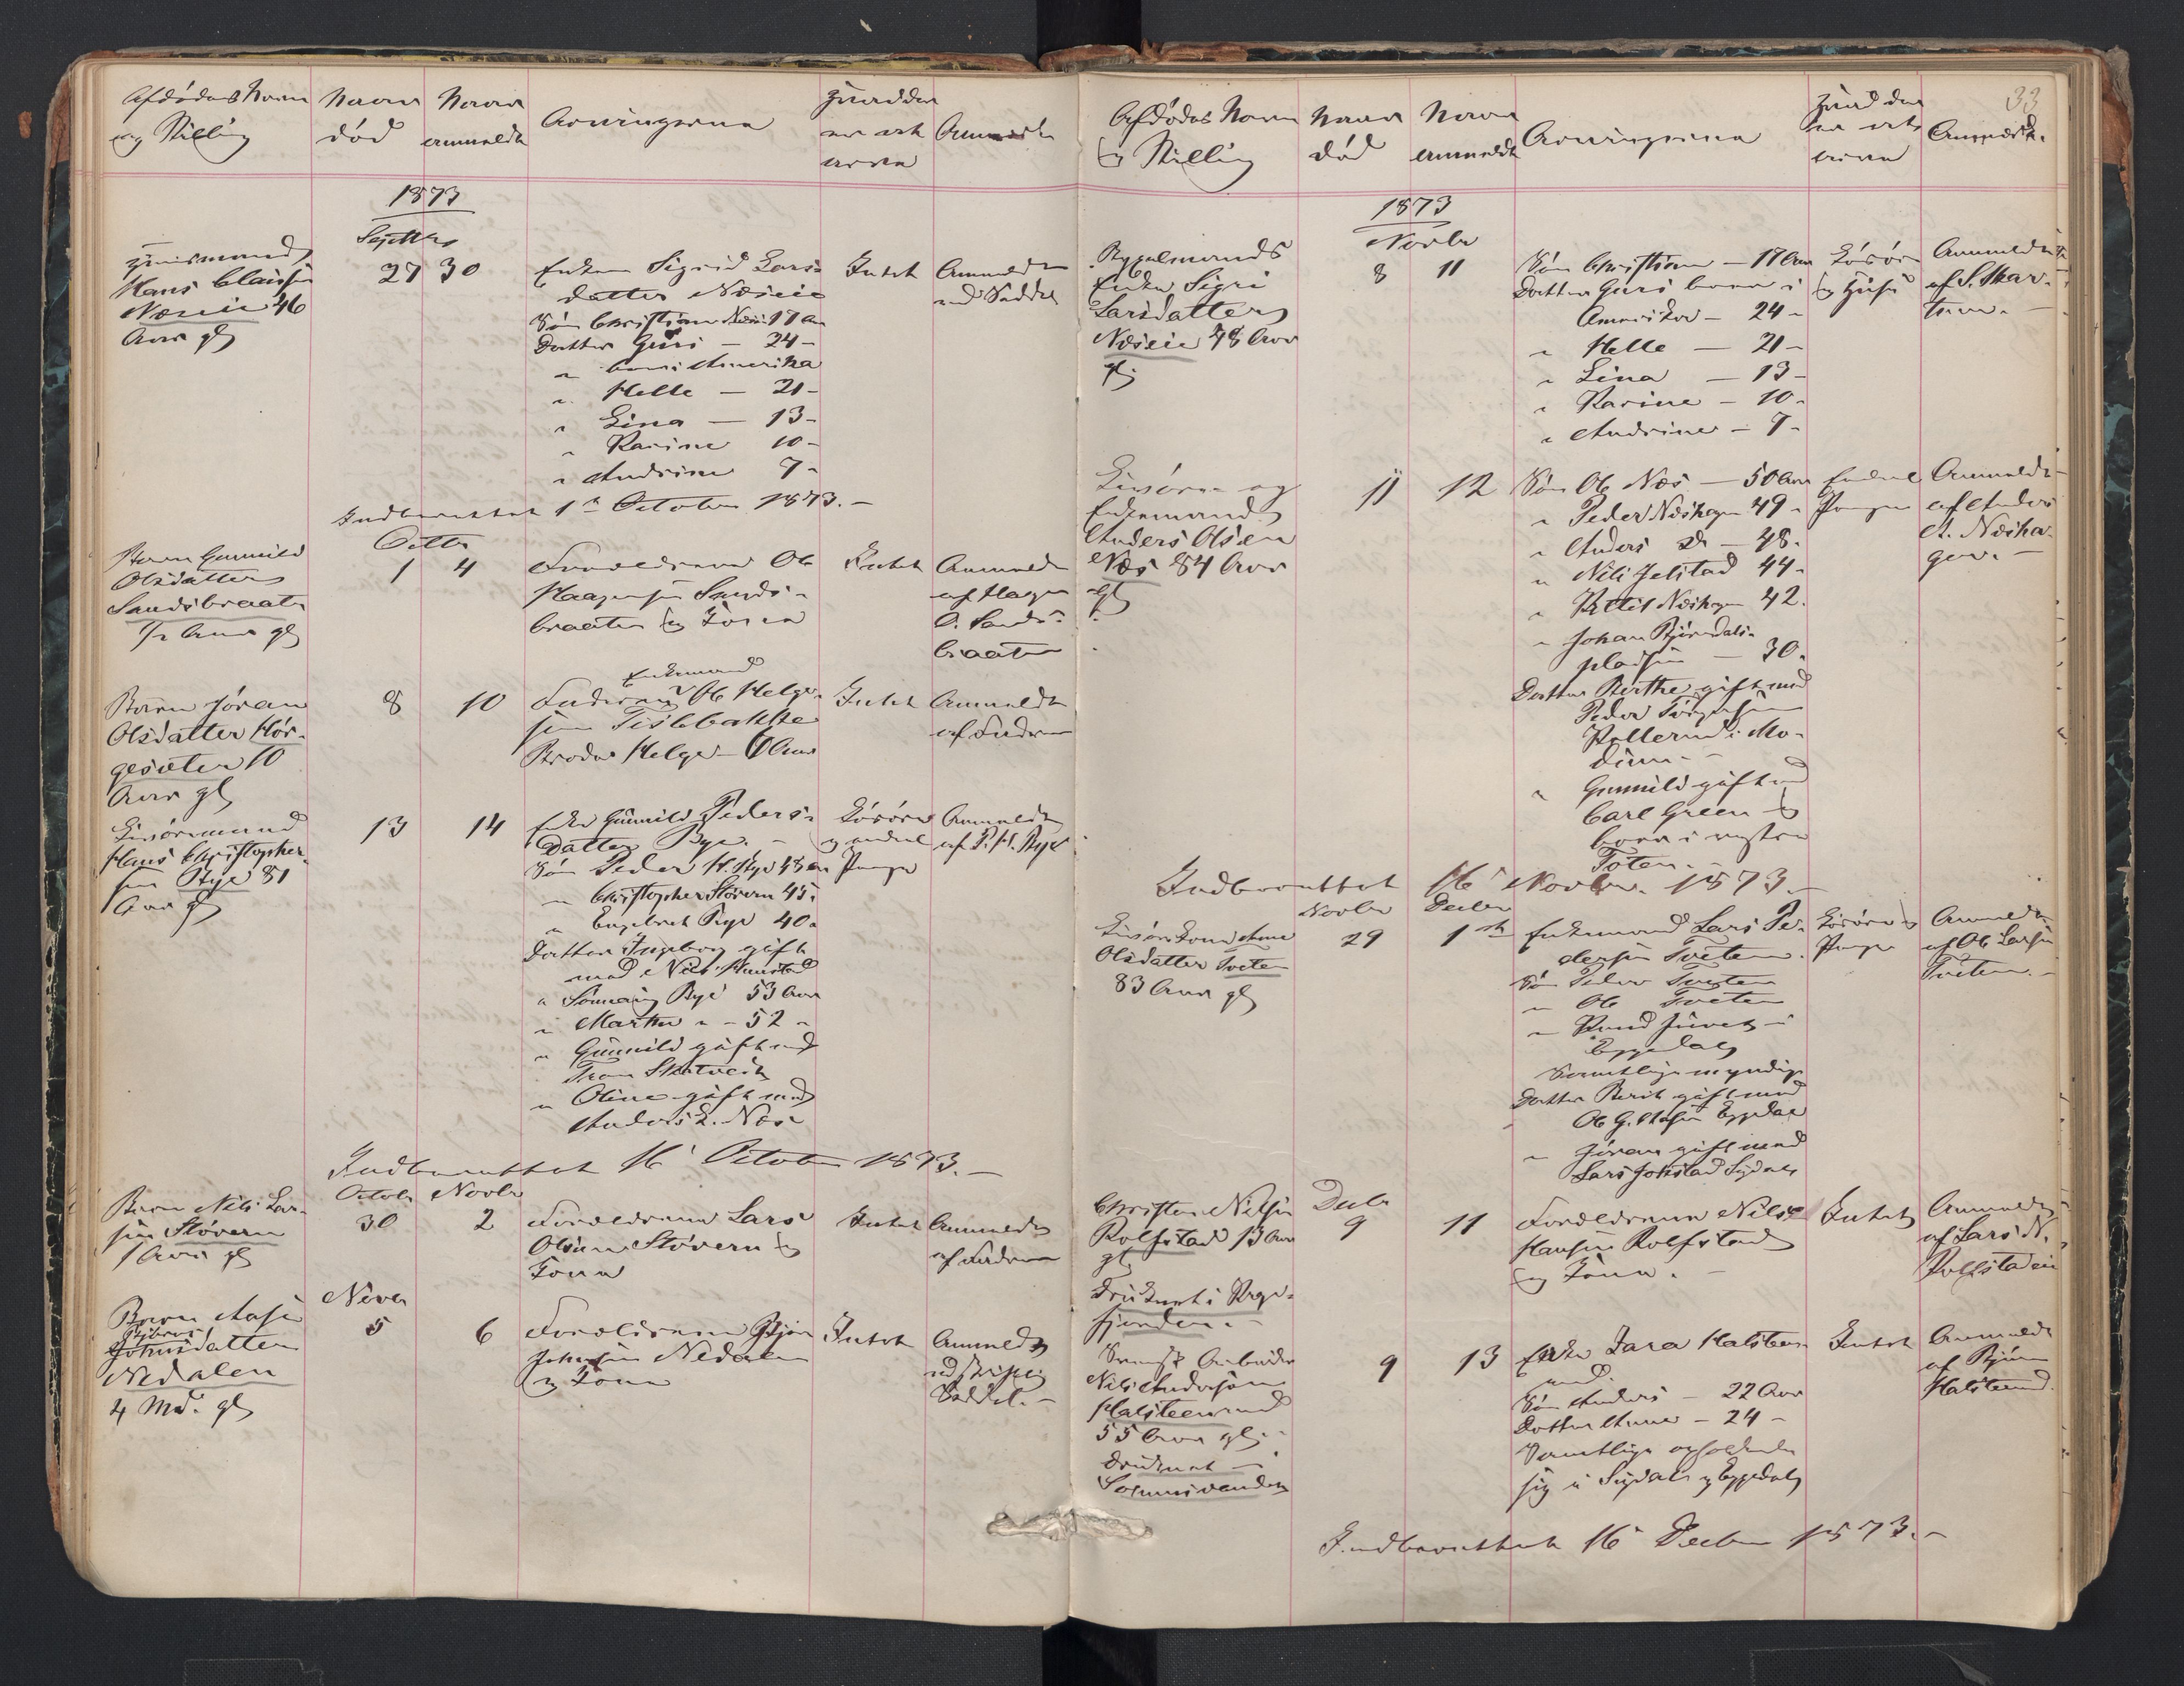 Afdødes Navn
og Stilling
Naar
død
Naar
anmeldt
Arvingerne
Hvad der
er at
arve
Anmærk
1873
Septbr
Huusmand
Hans Clausen
Næseie 46
Aar gl
27 30
Enken Sigrid Lars-
datter Næseie
Søn Christian Næseie 17 Aar
Datter Guri - 24 -
" boer i Amerika
" Helle - 21 -
" Lina - 13 -
" Karine 10 -
" Andrine 7 -
Intet
Anmeldt
ved Seddel
Indberettet 1ste October 1873. -
Octbr
Barn Gunnild
Olsdatter
Sandsbraaten
1/2 Aar gl
1 4
Forældrene Ole
Haagensen Sands-
braaten og Kone
Intet
Anmeldt
af Hagen
O. Sands-
braaten
Barn Jøran
Olsdatter Hør-
gesæter 10
Aar gl
8 10
Enkemand
Faderen Ole Helge-
sen Tislebakke
Broder Helge - 6 Aar
Intet
Anmeldt
af Faderen
Livøremand
Hans Christopher-
sen Bye 81
Aar gl
13 14
Enke Gunnild Peders-
datter Bye. -
Søn Peder H. Bye 48 Aar
" Christopher Støvern 45 -
" Engebret Bye 40 -
Datter Ingeborg gift
med Nils Kunstad
" Sønnaug Bye 53 Aar
" Marthe " - 52 -
" Gunnild gift med
Tron Skatvedt
" Oline gift med
Anders E. Næs
Løsøre
og endeel
Penge
Anmeldt
af P. H. Bye
Indberettet 16 October 1873. -
Octob Novbr
Barn Nils Lar-
sen Støvern
1 Aar gl
30 2
Forældrene Lars
Olsen Støvern og
Kone
Intet
Anmeldt
af Faderen
Novbr
Barn Aase
Bjørns
Johnsdatter
Nedalen
4 Md. gl
5 6
Forældrene Bjørn
Johnsen Nedalen
og Kone
Intet
Anmeldt
ved skriftlig
Seddel. -
33
Afdødes Navn
og Stilling
Naar
død
Naar
anmeldt
Arvingerne
Hvad der
er at
arve
Anmærk.
1873
Novbr
Bygselmands
Enke Sigri
Larsdatter
Næseie 48 Aar
gl
8 11
Søn Christian - 17 Aar
Datter Guri boer i
Amerika - 24 -
" Helle - 21 -
" Lina - 13 -
" Karine - 10 -
" Andrine - 7 -
Løsøre
og Huse
Anmeldt
af S. Skar-
tum. -
Livøre og
Enkemand
Anders Olsen
Næs 84 Aar
gl
11 12
Søn Ole Næs - 50 Aar
" Peder Næshagen 49 -
" Anders do - 48 -
" Nils Jelstad 44 -
" Kittil Næshagen 42.
" Johan Bjørndals-
pladsen - 30 -
Datter Berthe gift med
Peder Torgersen
Kollerud i Mo-
dum. -
" Gunnild gift med
Carl Green og
boer i vestre
Toten. -
Endeel
Penge
Anmeldt
af Anders
A. Næsha-
gen. -
Indberettet 16 Novbr. 1873. -
Novbr Decbr
Livørekone Anne
Olsdatter Tveten
83 Aar gl
29 1ste
Enkemand Lars Pe-
dersen Tveten.
Søn Peder Tveten
" Ole Tveten
" Knud Juvet i
Eggedal
Samtlige myndige
Datter Berit gift med
Ole G. Eggedal
" Jøran gift med
Lars Jokstad Sigdal
Løsøre og
Penge
Anmeldt
af Ole Larsen
Tveten. -
Christen Nilsen
Rolfstad 13 Aar
gl
druknet i Kryd-
fjorden. -
Decbr
9 11
Forældrene Nils
Hansen Rolfstad
og Kone. -
Intet
Anmeldt
af Lars N.
Rolfstadeie
Svensk Arbeider
Nils Andersen
Halsteenrud
55 Aar gl. -
druknet i
Solumsvandet
9 13
Enke Sara Halsteen-
rud.
Søn Anders - 22 Aar
Datter Anne - 24 -
Samtlige opholder
sig i Sigdal og Eggedal
Intet
Anmeldt
af Bjørn
Halsteenrud.
Indberettet 16 Decbr 1873. -